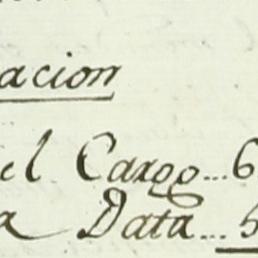 acion
el Cargo... 6
a Data... 5